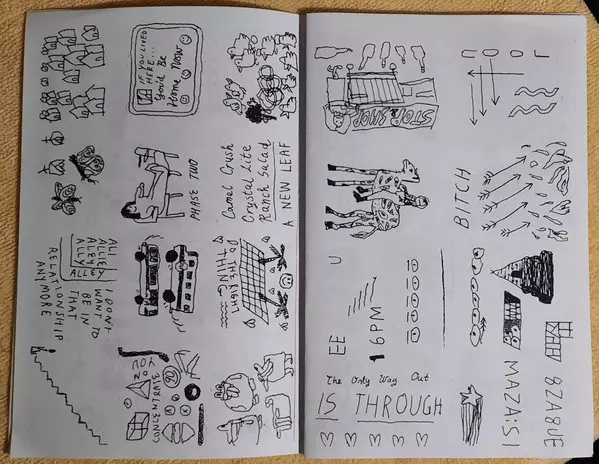 IF YOU LIVED
HERE...
You'd Be
Home Now
PHASE TWO
Camel Crush
Crystal Lite
Ranch Salad
A NEW LEAF
ALI
ALLIE
ALEY
ALLY
I DONT
WANT TO
BE IN
THAT
RELATIONSHIP
ANYMORE
DO THE RIGHT
THING
YOU
CONCENTRATE
STOP & SHOP
BITCH
U
EE
16PM
The Only Way Out
IS THROUGH
MAZA:SI
8ZA8UE